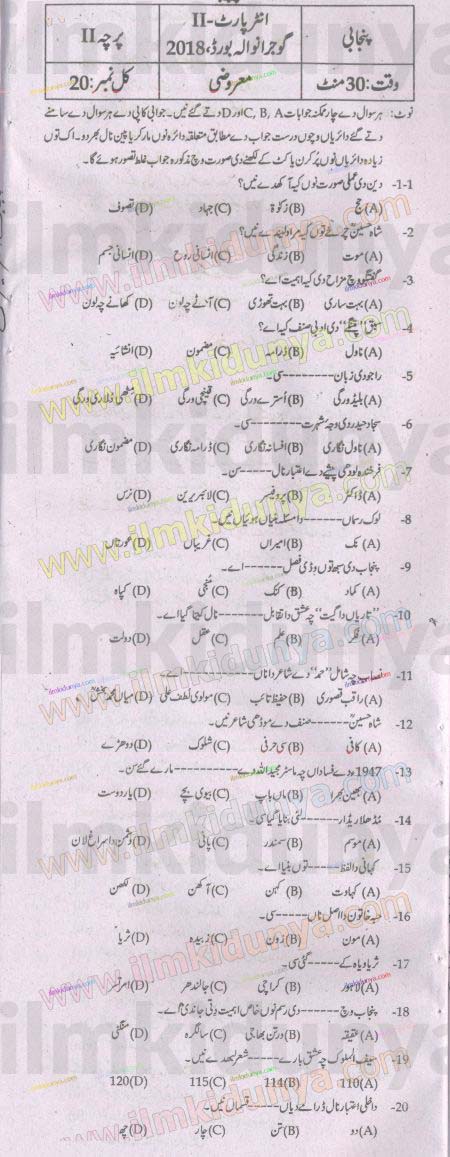 پنجابی
انٹر پارٹ-II
گوجرانوالہ بورڈ، 2018
پرچہ II
وقت: 30 منٹ
معروضی
کل نمبر: 20
نوٹ: ہر سوال دے چار ممکنہ جوابات C, B, A اور D دتے گئے نیں۔ جوابی کاپی دے ہر سوال دے سامنے
دتے گئے دائریاں وچوں درست جواب دے مطابق متعلقہ دائرہ نوں مارکر یا پین نال بھر دو۔ اک توں
زیادہ دائریاں نوں پُر کرن یا کٹ کے لکھنے دی صورت وچ مذکورہ جواب غلط تصور ہوئے گا۔
1-1- دین دی عملی صورت نوں کیہ آکھدے نیں؟
(A) حج (B) زکوٰۃ (C) جہاد (D) تصوف
2- شاہ حسینؒ چرخے توں کیہ مراد لیندے نیں؟
(A) موت (B) زندگی (C) انسانی روح (D) انسانی جسم
3- گفتگو وچ مزاح دی کیہ اہمیت اے؟
(A) بہت ساری (B) بہت تھوڑی (C) آٹے چہ لون (D) کھانے چہ لون
4- سبق "" دی ادبی صنف کیہ اے؟
(A) ناول (B) ڈرامہ (C) مضمون (D) انشائیہ
5- راجو دی زبان --------- سی۔
(A) بلیڈ ورگی (B) اُسترے ورگی (C) قینچی ورگی (D)
6- سجاد حیدر دی وجہ شہرت --------- سی۔
(A) ناول نگاری (B) افسانہ نگاری (C) ڈرامہ نگاری (D) مضمون نگاری
7- فرخندہ لودھی پیشے دے اعتبار نال ------ سن۔
(A) ڈاکٹر (B) پروفیسر (C) لائبریرین (D) نرس
8- لوک رسماں ------ دا مسئلہ بنیاں ہوئیاں نیں۔
(A) نک (B) امیراں (C) غریباں (D) عورتاں
9- پنجاب دی سبھ توں وڈی فصل ------- اے۔
(A) کماد (B) کنک (C) مُنجی (D) کپاہ
10- "تاریاں دا گیت" چہ عشق دا تقابل -------- نال کیتا گیا اے۔
(A) فکر (B) علم (C) عقل (D) دولت
11- نصاب چہ شامل "حمد" دے شاعر دا ناں --------- اے۔
(A) راقب قصوری (B) حفیظ تائب (C) مولوی لطف علی (D) میاں محمد بخشؒ
12- شاہ حسینؒ ------ صنف دے موڈھی شاعر نیں۔
(A) کافی (B) سی حرفی (C) شلوک (D) دوہڑے
13- 1947ء دے فساداں چہ ماسٹر مجید اللہ دے ---------- مارے گئے سن۔
(A) بھین بھرا (B) ماں باپ (C) بیوی بچے (D) یار دوست
14- مُڈھلا ریڈار ------- لئی بنایا گیا سی۔
(A) موسم (B) سمندر (C) پانی (D) دشمن دا سراغ لان
15- کہانی دا لفظ ------- توں بنیا اے۔
(A) کہاوت (B) کہن (C) آکھن (D) لکھن
16- حبہ خاتون دا اصل ناں ------ سی۔
(A) مون (B) زون (C) زبیدہ (D) ثریا
17- ثریا ویاہ کے ------ گئی سی۔
(A) لاہور (B) کراچی (C) جالندھر (D) امرتسر
18- پنجاب وچ ------- دی رسم نوں خاص اہمیت دتی جاندی اے۔
(A) عقیقہ (B) ورتن بھاجی (C) سالگرہ (D) منگنی
19- سیف الملوک چہ عشق بارے ------ شعر لبھدے نیں۔
(A) 110 (B) 114 (C) 115 (D) 120
20- داخلی اعتبار نال ڈرامے دیاں ------ قسماں نیں۔
(A) دو (B) تن (C) چار (D) چھ
www.ilmkidunya.com
ilmkidunya.com